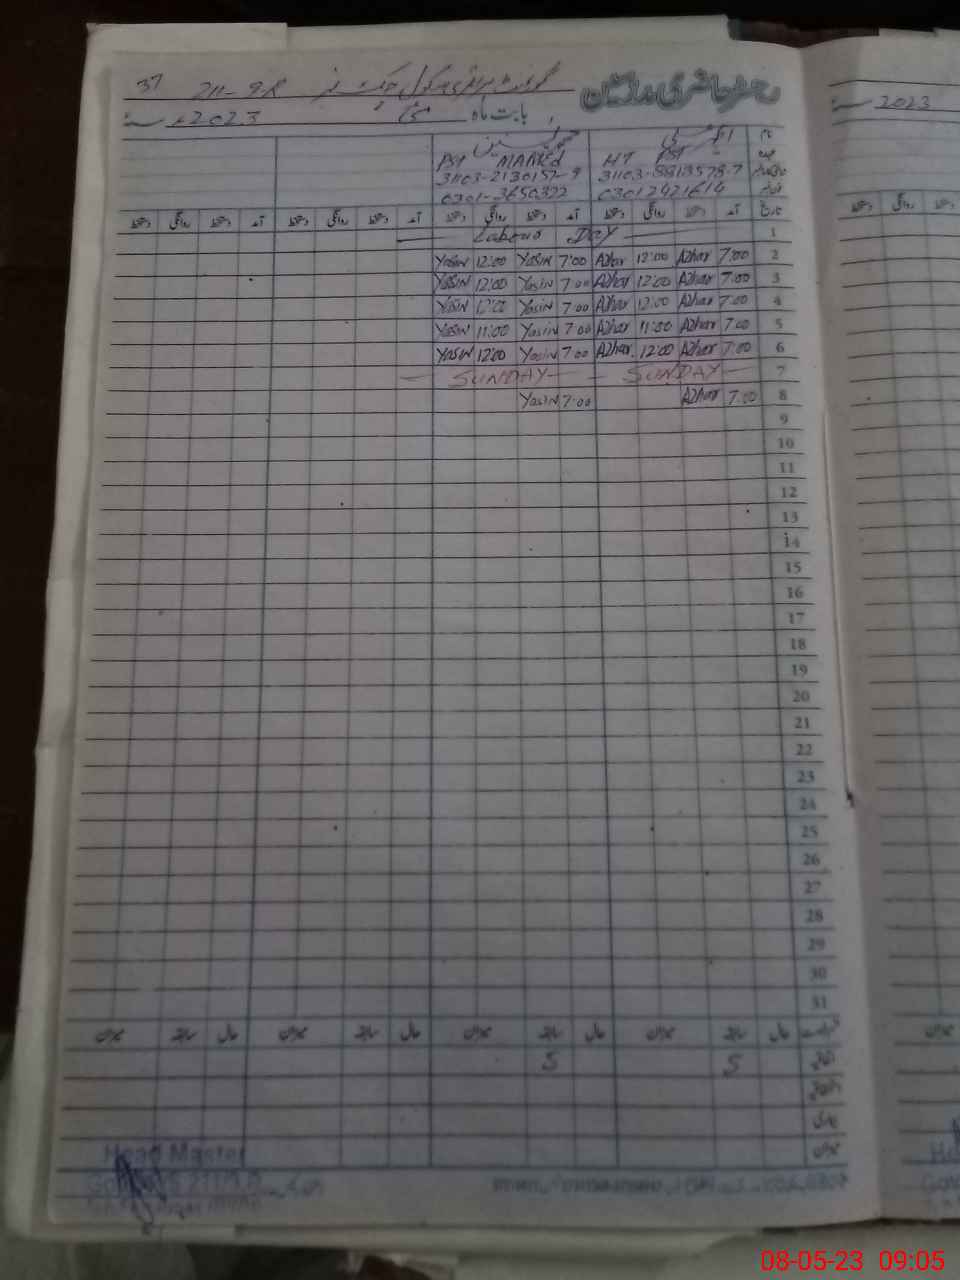 37
رجسٹر حاضری مدرسین
گورنمنٹ پرائمری سکول چک نمبر 211-9R
بابت ماہ مئی 2023
2023
نام
عہدہ
PST MARKEd HT PST
31103-2130157-9 31103-8813578-7
0301-3650322 03012421614
تاریخ آمد دستخط روانگی دستخط آمد دستخط روانگی دستخط آمد دستخط روانگی دستخط آمد دستخط روانگی دستخط
Labour DAY 1
Yasin 12:00 Yasin 7:00 Azhar 12:00 Azhar 7:00 2
Yasin 12:00 Yasin 7:00 Azhar 12:00 Azhar 7:00 3
Yasin 12:00 Yasin 7:00 Azhar 12:00 Azhar 7:00 4
Yasin 11:00 Yasin 7:00 Azhar 11:00 Azhar 7:00 5
Yasin 12:00 Yasin 7:00 Azhar 12:00 Azhar 7:00 6
SUNDAY SUNDAY 7
Yasin 7:00 Azhar 7:00 8
9
10
11
12
13
14
15
16
17
18
19
20
21
22
23
24
25
26
27
28
29
30
31
حال سابقہ میزان حال سابقہ میزان حال سابقہ میزان حال سابقہ میزان
5 5
اتفاقیہ
بیماری
میزان
Head Master
08-05-23 09:05